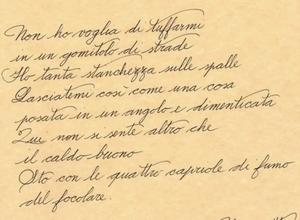 Non ho voglia di tuffarmi
in un gomitolo di strade
Ho tanta stanchezza sulle spalle
Lasciatemi così come una cosa
posata in un angolo e dimenticata
Qui non si sente altro che
il caldo buono
Sto con le quattro capriole di fumo
del focolare.